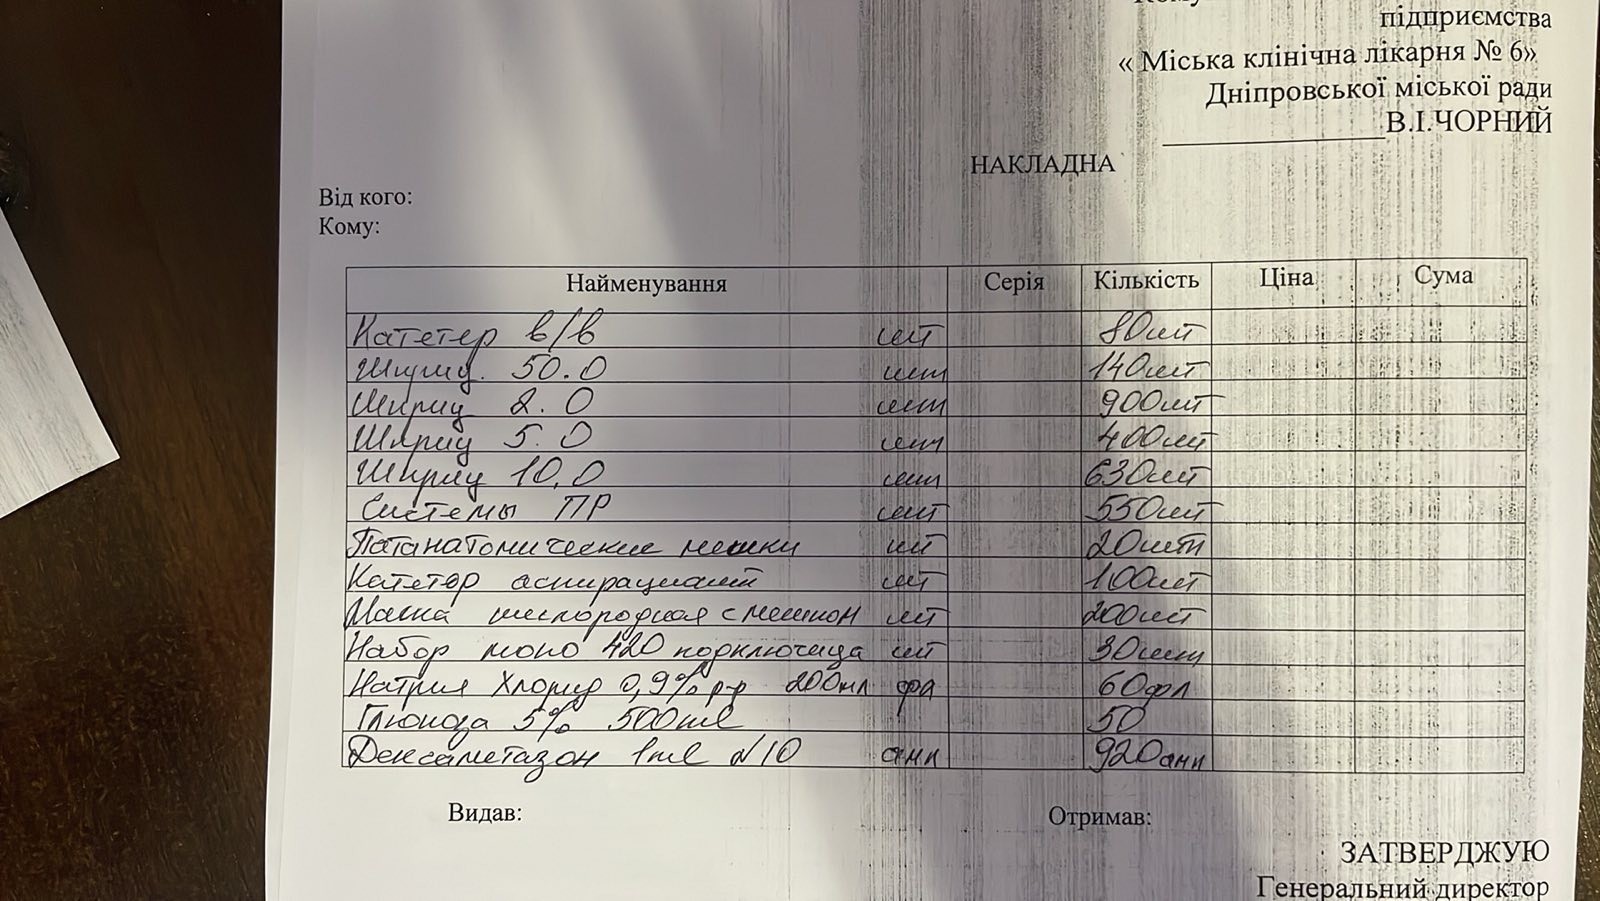 підприємства
« Міська клінічна лікарня № 6»
Дніпровської міської ради
В.І.ЧОРНИЙ
НАКЛАДНА
Від кого:
Кому:
Найменування Серія Кількість Ціна Сума
Катетер в/в шт 80шт
Шприц 50.0 шт 140шт
Шприц 2.0 шт 900шт
Шприц 5.0 шт 400шт
Шприц 10,0 шт 630шт
Системы ПР шт 550шт
Патанатомические мешки шт 20шт
Катетер аспирацион шт 100шт
Маска кислородная с мешком шт 200шт
Набор моно 420 подключица шт 30шт
Натрия Хлорид 0,9% р-р 200мл фл 60фл
Глюкоза 5% 500ml 50
Дексаметазон 1ml №10 амп 920амп
Видав: Отримав:
ЗАТВЕРДЖУЮ
Генеральний директор